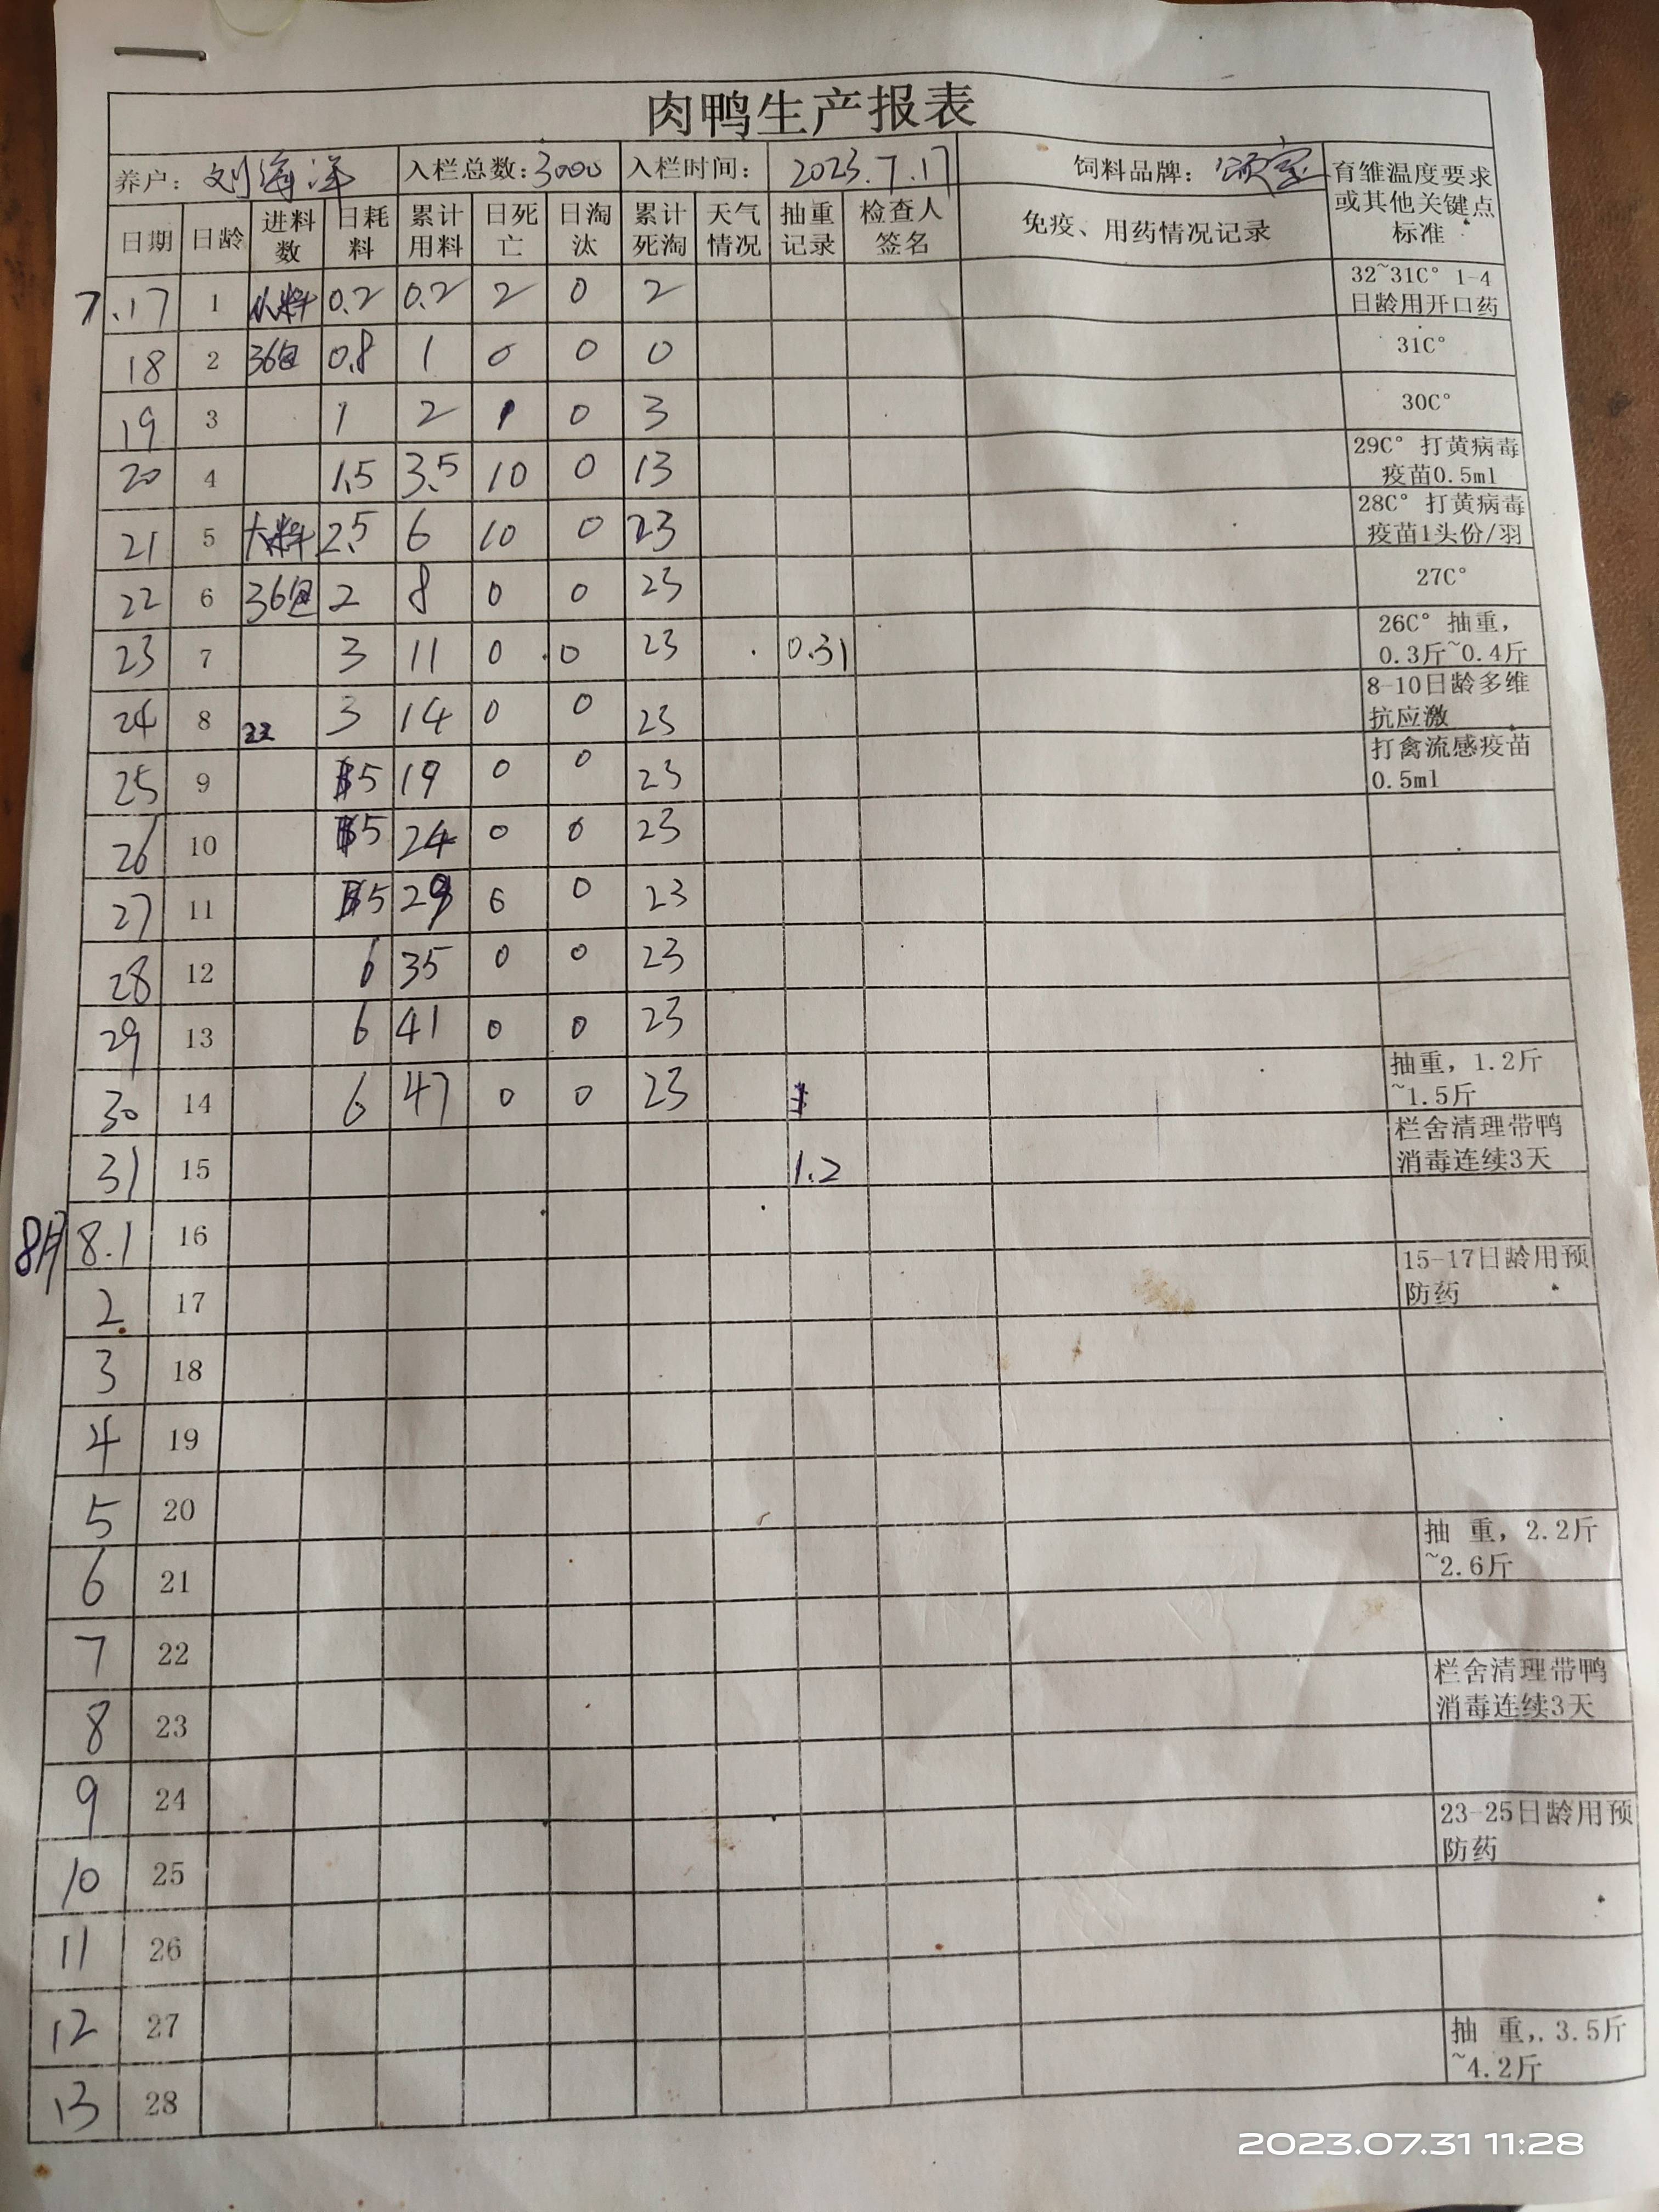 肉鸭生产报表
养户: 刘海洋 入栏总数:3000 入栏时间: 2023.7.17 饲料品牌: 育雏温度要求或其他关键点标准
日期 日龄 进料数 日耗料 累计用料 日死亡 日淘汰 累计死淘 天气情况 抽重记录 检查人签名 免疫、用药情况记录
7.17 1 小料 0.2 0.2 2 0 2 32~31C° 1-4日龄用开口药
18 2 36包 0.8 1 0 0 0 31C°
19 3 1 2 1 0 3 30C°
20 4 1.5 3.5 10 0 13 29C° 打黄病毒疫苗0.5ml
21 5 大料 2.5 6 10 0 23 28C° 打黄病毒疫苗1头份/羽
22 6 36包 2 8 0 0 23 27C°
23 7 3 11 0 0 23 0.31 26C° 抽重,0.3斤~0.4斤
24 8 3 14 0 0 23 8-10日龄多维抗应激
25 9 5 19 0 0 23 打禽流感疫苗0.5ml
26 10 5 24 0 0 23
27 11 5 29 0 0 23
28 12 6 35 0 0 23
29 13 6 41 0 0 23
30 14 6 47 0 0 23 抽重,1.2斤~1.5斤
31 15 1.2 栏舍清理带鸭消毒连续3天
8月 8.1 16
2 17 15-17日龄用预防药
3 18
4 19
5 20
6 21 抽 重,2.2斤~2.6斤
7 22
8 23 栏舍清理带鸭消毒连续3天
9 24
10 25 23-25日龄用预防药
11 26
12 27
13 28 抽 重,.3.5斤~4.2斤
2023.07.31 11:28